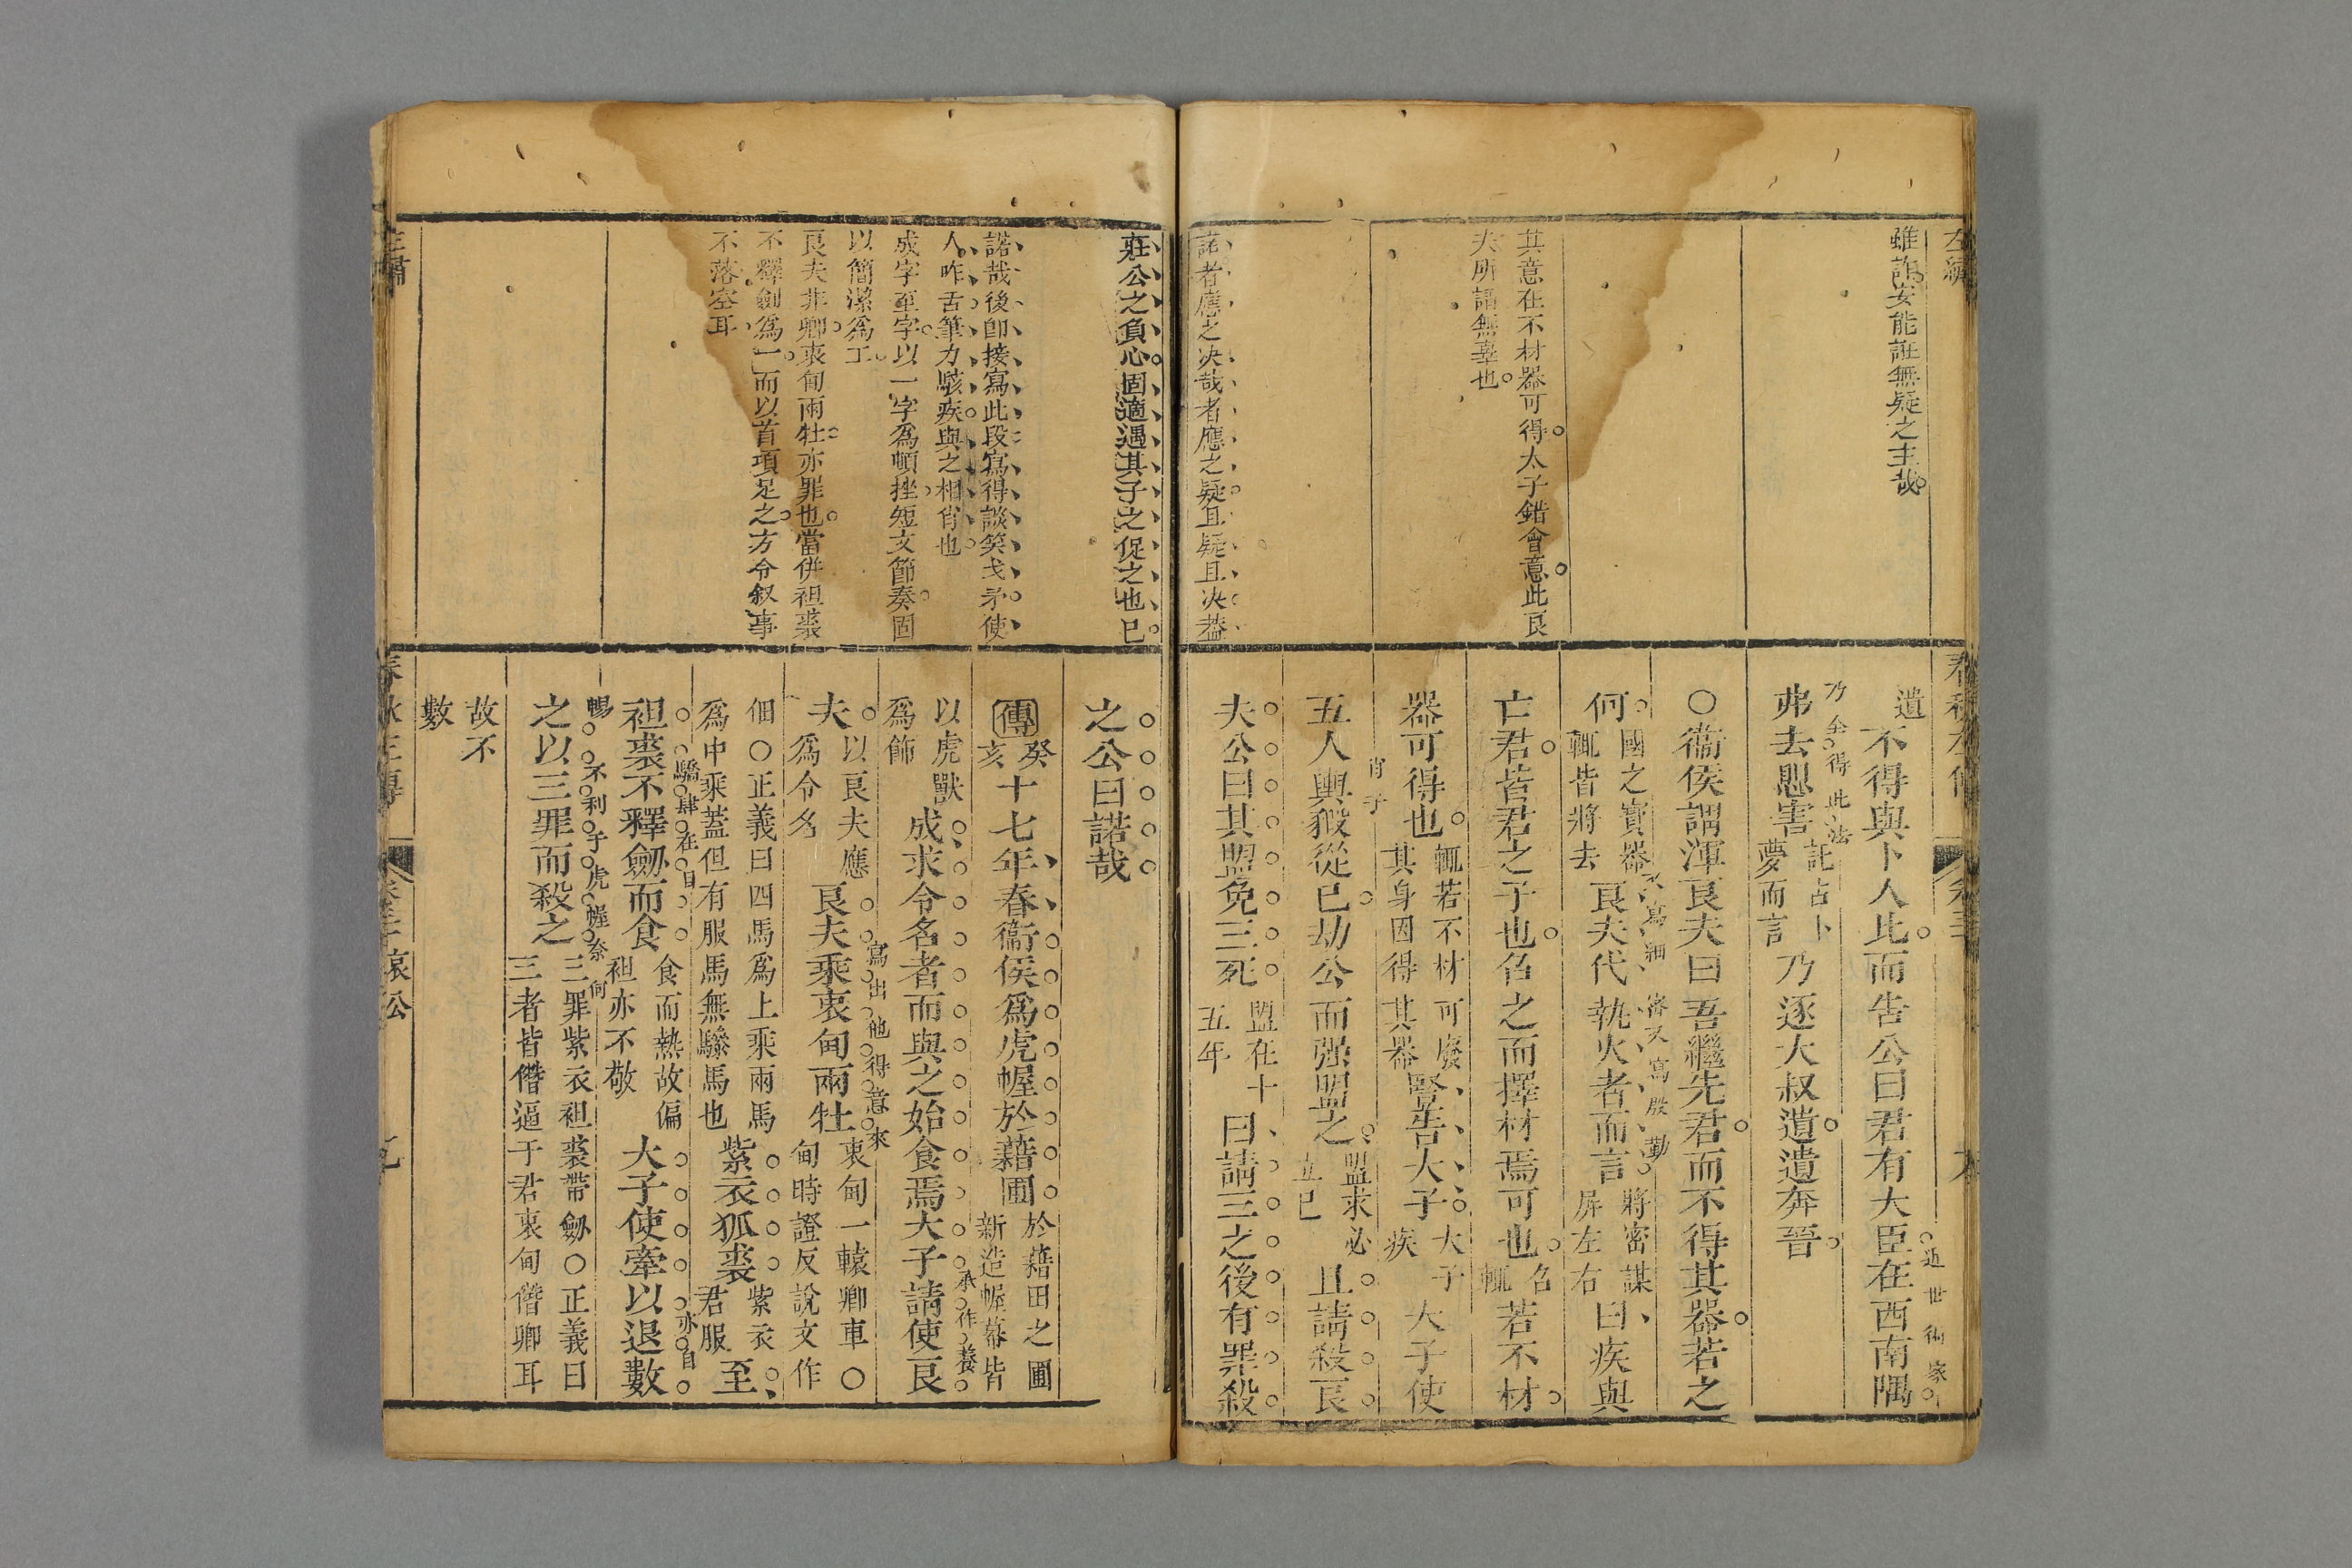 左繡
雖誰安能誑無疑之主哉
其意在不材器可得太子錯會意此良
夫所謂無辜也
諾者應之决哉者應之疑且疑且决葢
春秋左傳
遺不得與卜人比而告公曰君有大臣在西南隅
近世術家
弗去懼害託占卜夢而言乃逐大叔遺遺奔晉
乃全得此法
○衞侯謂渾良夫曰吾繼先君而不得其器若之
何國之寶器輒皆將去良夫代執火者而言將密謀屏左右曰疾與
又寫細密又寫殷勤
亡君皆君之子也召之而擇材焉可也召輒若不材
器可得也輒若不材可廢其身因得其器豎告大子大子疾大子使
五人輿豭從已劫公而强盟之盟求必立已且請殺良
夫公曰其盟免三死盟在十五年曰請三之後有罪殺
莊公之負心固適遇其子之促之也巳
諾哉後卽接寫此段寫得談笑戈矛使
人咋舌筆力駭疾與之相肖也
成字至字以一字爲頓挫短文節奏固
以簡潔爲工
良夫非卿衷甸兩牡亦罪也當併袒裘
不釋劍爲一而以首項足之方令叙事
不落空耳
之公曰諾哉
傳癸亥十七年春衞侯爲虎幄於藉圃於藉田之圃新造幄幕皆
以虎獸爲飾成求令名者而與之始食焉大子請使良
承作養
夫以良夫應爲令名良夫乘衷甸兩牡衷甸一轅卿車○甸時證反說文作
寫出他得意來
佃○正義曰四馬爲上乘兩馬爲中乘葢但有服馬無驂馬也紫衣狐裘紫衣君服至
袒裘不釋劒而食食而熱故偏袒亦不敬大子使牽以退數
驕肆在目
亦自
之以三罪而殺之三罪紫衣袒裘帶劒○正義曰三者皆僭逼于君衷甸僭卿耳
暢
不利于虎幄奈何
故不數
春秋左傳
哀公